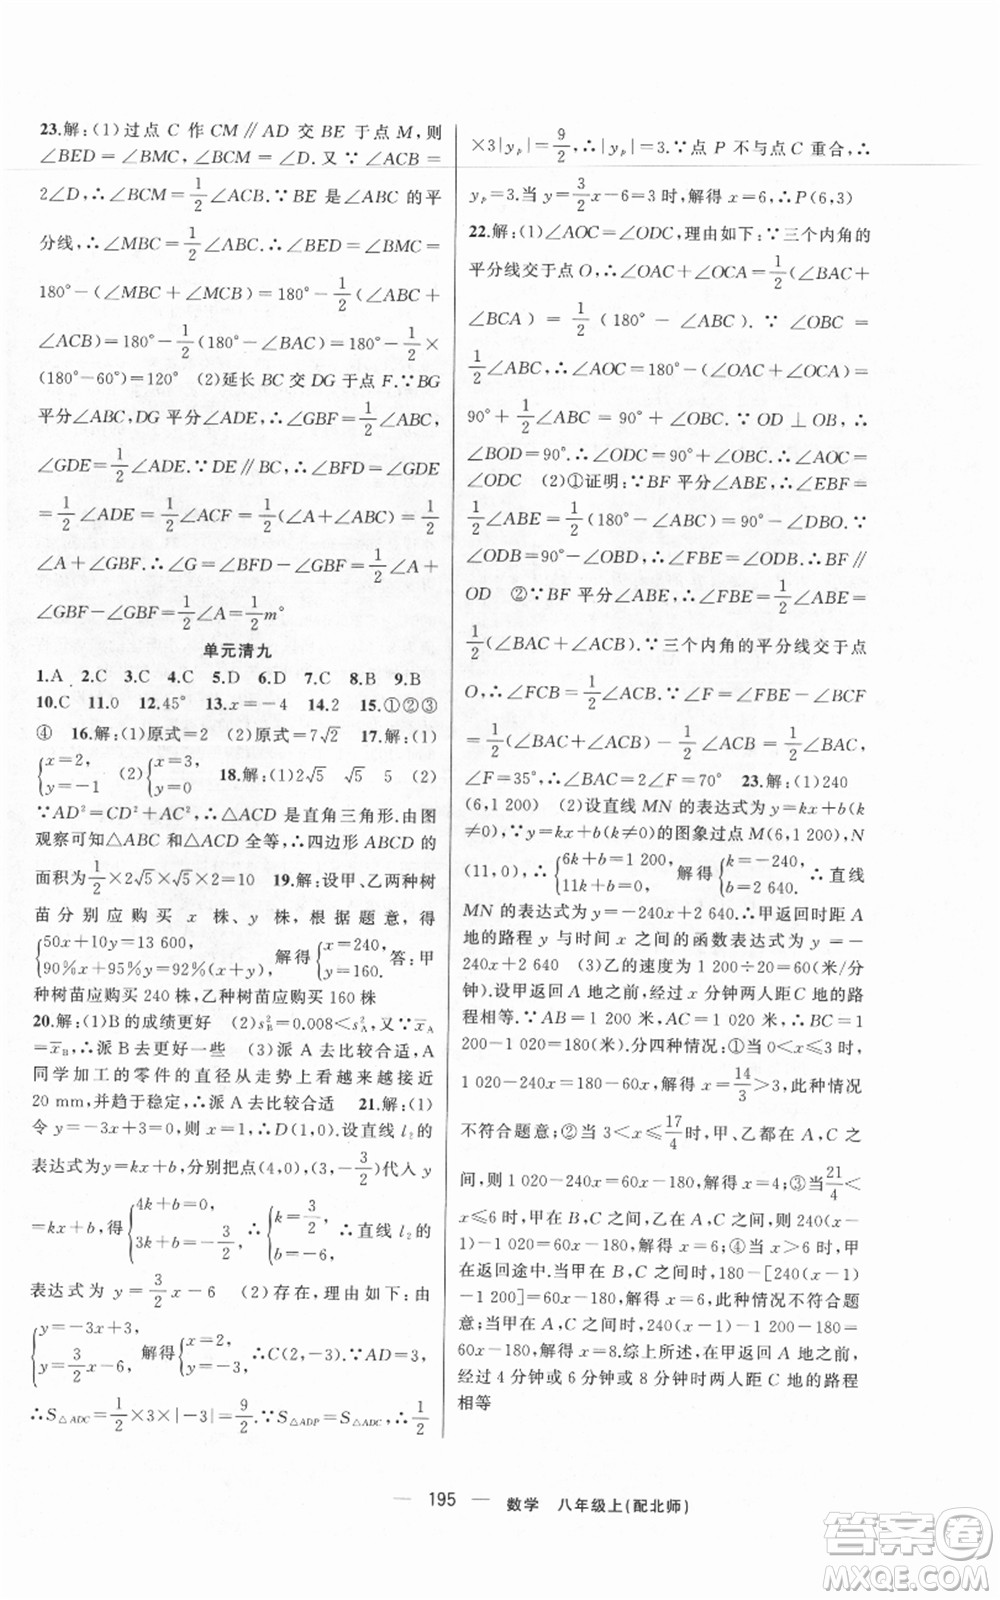 23.解:(1)过点 C 作 CM∥AD 交 BE 于点 M,则
∠BED=∠BMC,∠BCM=∠D.又∵∠ACB=
2∠D,∴∠BCM=1/2∠ACB.∵BE 是∠ABC 的平
分线,∴∠MBC=1/2∠ABC.∴∠BED=∠BMC=
180°-(∠MBC+∠MCB)=180°-1/2(∠ABC+
∠ACB)=180°-1/2(180°-∠BAC)=180°-1/2×
(180°-60°)=120° (2)延长 BC 交 DG 于点 F.∵BG
平分∠ABC,DG 平分∠ADE,∴∠GBF=1/2∠ABC,
∠GDE=1/2∠ADE.∵DE∥BC,∴∠BFD=∠GDE
=1/2∠ADE=1/2∠ACF=1/2(∠A+∠ABC)=1/2
∠A+∠GBF.∴∠G=∠BFD-∠GBF=1/2∠A+
∠GBF-∠GBF=1/2∠A=1/2m°
单元清九
1.A 2.C 3.C 4.C 5.D 6.D 7.C 8.B 9.B
10.C 11.0 12.45° 13.x=-4 14.2 15.①②③
④ 16.解:(1)原式=2 (2)原式=7√2 17.解:(1)
{x=2, y=-1 (2){x=3, y=0 18.解:(1)2√5 √5 5 (2)
∵AD²=CD²+AC²,∴△ACD 是直角三角形.由图
观察可知△ABC 和△ACD 全等,∴四边形 ABCD 的
面积为1/2×2√5×√5×2=10 19.解:设甲、乙两种树
苗分别应购买 x 株、y 株,根据题意,得
{50x+10y=13 600, 90%x+95%y=92%(x+y), 解得{x=240, y=160. 答:甲
种树苗应购买 240 株,乙种树苗应购买 160 株
20.解:(1)B的成绩更好 (2)s²B=0.008<s²A,又∵x̄A
=x̄B,∴派 B 去更好一些 (3)派 A 去比较合适,A
同学加工的零件的直径从走势上看越来越接近
20 mm,并趋于稳定,∴派 A 去比较合适 21.解:(1)
令 y=-3x+3=0,则 x=1,∴D(1,0).设直线 l₂的
表达式为 y=kx+b,分别把点(4,0),(3,-3/2)代人 y
=kx+b,得{4k+b=0, 3k+b=-3/2, ∴{k=3/2, b=-6, ∴直线 l₂的
表达式为 y=3/2x-6 (2)存在,理由如下:由
{y=-3x+3, y=3/2x-6, 解得{x=2, y=-3, ∴C(2,-3).∵AD=3,
∴S△ADC=1/2×3×|-3|=9/2.∵S△ADP=S△ADC,∴1/2
×3|yP|=9/2,∴|yP|=3.∵点 P 不与点 C 重合,∴
yP=3.当 y=3/2x-6=3 时,解得 x=6,∴P(6,3)
22.解:(1)∠AOC=∠ODC,理由如下:∵三个内角的
平分线交于点 O,∴∠OAC+∠OCA=1/2(∠BAC+
∠BCA)=1/2(180°-∠ABC).∵∠OBC=
1/2∠ABC,∴∠AOC=180°-(∠OAC+∠OCA)=
90°+1/2∠ABC=90°+∠OBC.∵OD⊥OB,∴
∠BOD=90°.∴∠ODC=90°+∠OBC.∴∠AOC=
∠ODC (2)①证明:∵BF 平分∠ABE,∴∠EBF=
1/2∠ABE=1/2(180°-∠ABC)=90°-∠DBO.∵
∠ODB=90°-∠OBD,∴∠FBE=∠ODB.∴BF∥
OD ②∵BF 平分∠ABE,∴∠FBE=1/2∠ABE=
1/2(∠BAC+∠BCA).∵三个内角的平分线交于点
O,∴∠FCB=1/2∠BCA.∵∠F=∠FBE-∠BCF
=1/2(∠BAC+∠BCA)-1/2∠BCA=1/2∠BAC,
∠F=35°,∴∠BAC=2∠F=70° 23.解:(1)240
(6,1 200) (2)设直线 MN 的表达式为 y=kx+b(k
≠0),∵y=kx+b(k≠0)的图象过点 M(6,1 200),N
(11,0),∴{6k+b=1 200, 11k+b=0, 解得{k=-240, b=2 640. ∴直线
MN 的表达式为 y=-240x+2 640.∴甲返回时距 A
地的路程 y 与时间 x 之间的函数表达式为 y=-
240x+2 640 (3)乙的速度为 1 200÷20=60(米/分
钟).设甲返回 A 地之前,经过 x 分钟两人距 C 地的路
程相等.∵AB=1 200 米,AC=1 020 米,∴BC=1
200-1 020=180(米).分四种情况:①当 0<x≤3 时,
1 020-240x=60x-180,解得 x=14/3>3,此种情况
不符合题意;②当 3<x≤17/4时,甲、乙都在 A,C 之
间,则 1 020-240x=60x-180,解得 x=4;③当21/4<
x≤6 时,甲在 B,C 之间,乙在 A,C 之间,则 240(x-
1)-1 020=60x-180,解得 x=6;④当 x>6 时,甲
在返回途中.当甲在 B,C 之间时,180-[240(x-1)
-1 200]=60x-180,解得 x=6,此种情况不符合题
意;当甲在 A,C 之间时,240(x-1)-1 200-180=
60x-180,解得 x=8.综上所述,在甲返回 A 地之前,
经过 4 分钟或 6 分钟或 8 分钟时两人距 C 地的路程
相等
— 195 — 数学 八年级上(配北师)
答案圈
MXQE.COM